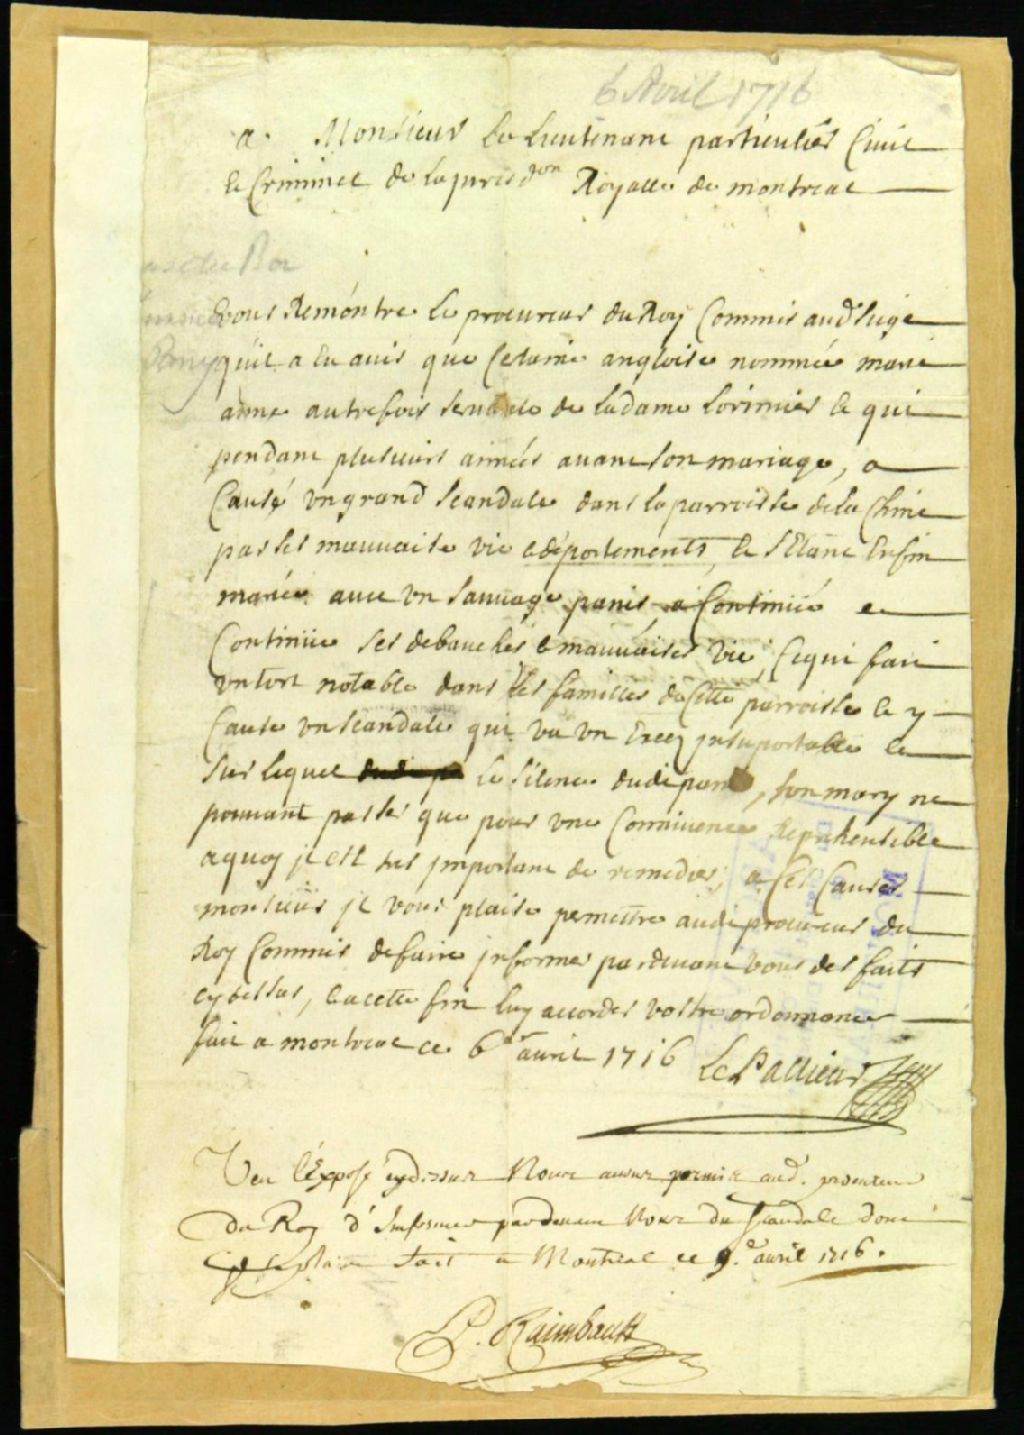 6 Avril 1716
a. Monsieur le Lieutenant particulier Civil
& Criminel de la jurisdon Royalle de montreal
Vous Remontre le procureur du Roy Commis audt siege
quil a eu avis que Certaine angloise nommée marie
anne autrefois servante de la dame Lorimier & qui
pendant plusieurs années avant son mariage, a
Causé un grand scandale dans la parroisse de la Chine
par ses mauvaise vie & deportements, & s'Etant Enfin
mariée avec un sauvage panis a Continüé et
Continüe ses debauches & mauvaises vie, Ce qui fait
un tort notable dans les familles de Cette parroisse & y
Cause un scandale qui va un Excez jnsuportable &
sur lequel le silence dudi panis, son mary ne
pouvant passer que pour une Connivence Reprehensible
a quoy jl est tres jmportant de remedier, a Ces Causes
monsieur jl vous plaise permettre audi procureur du
Roy Commis de faire jnformer pardevant vous des faits
cy dessus, & a cette fin luy accorder vostre ordonnance
fait a montreal ce 6e avril 1716 Le Pallieur
Veu l'Exposé cy dessus Nous avons permis aud. procureur
du Roy d'Informer pardevant Nous du scandale dont
il se plaint fait a Montreal ce 9.e avril 1716.
P. Raimbault